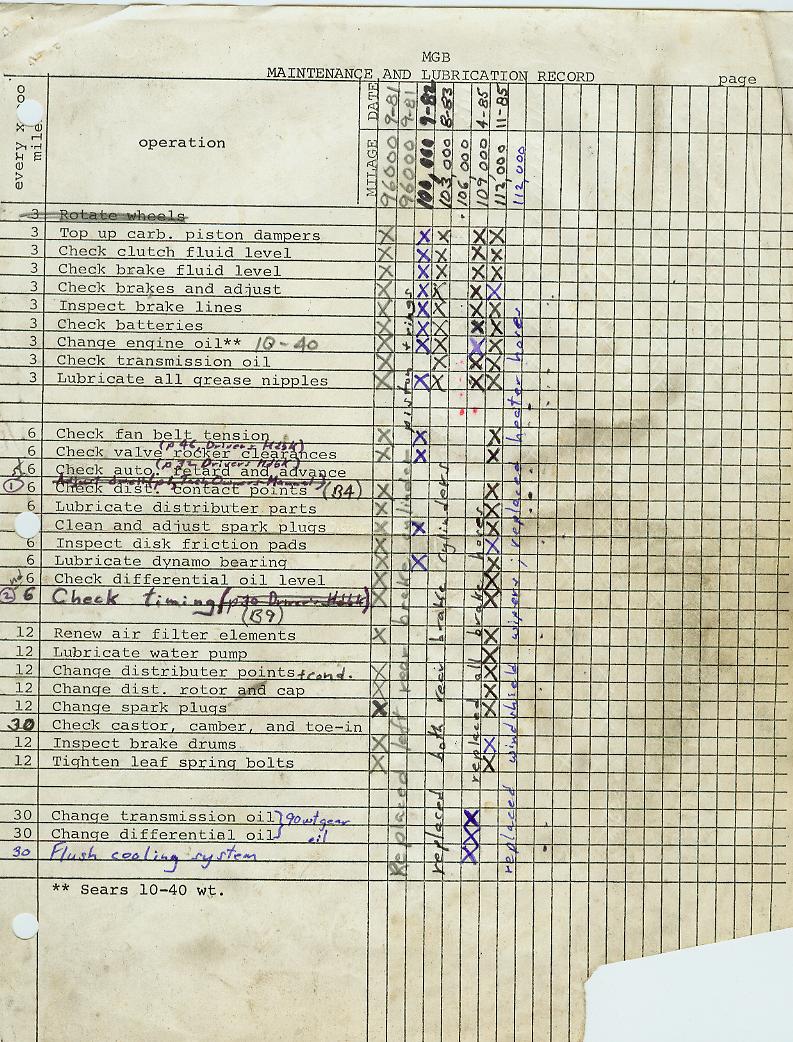 MGB
MAINTENANCE AND LUBRICATION RECORD
page
every x 000 mile
operation
MILAGE DATE
96000 9-81
96000 9-81
100,000 9-82
103,000 8-83
106,000
109,000 4-85
112,000 11-85
112,000
3 Rotate wheels
3 Top up carb. piston dampers X X X X X X
3 Check clutch fluid level
3 Check brake fluid level
3 Check brakes and adjust
3 Inspect brake lines
3 Check batteries
3 Change engine oil** 10-40
3 Check transmission oil
3 Lubricate all grease nipples
6 Check fan belt tension
(p 46, Drivers Hdbk)
6 Check valve rocker clearances
(p 32 Drivers Hdbk)
6 Check auto. retard and advance
1 6 Check dist. contact points (B4)
6 Lubricate distributer parts
6 Clean and adjust spark plugs
6 Inspect disk friction pads
6 Lubricate dynamo bearing
6 Check differential oil level
2 6 Check timing (p 30 Drivers Hdbk)
(B9)
12 Renew air filter elements
12 Lubricate water pump
12 Change distributer points + cond.
12 Change dist. rotor and cap
12 Change spark plugs
30 Check castor, camber, and toe-in
12 Inspect brake drums
12 Tighten leaf spring bolts
30 Change transmission oil } 90 wt gear
30 Change differential oil } oil
30 Flush cooling system
** Sears 10-40 wt.
Replaced left rear brake cylinder piston + rings
replaced both rear brake cylinders
replaced all brake hoses
replaced windshield wipers; replaced heater hoses